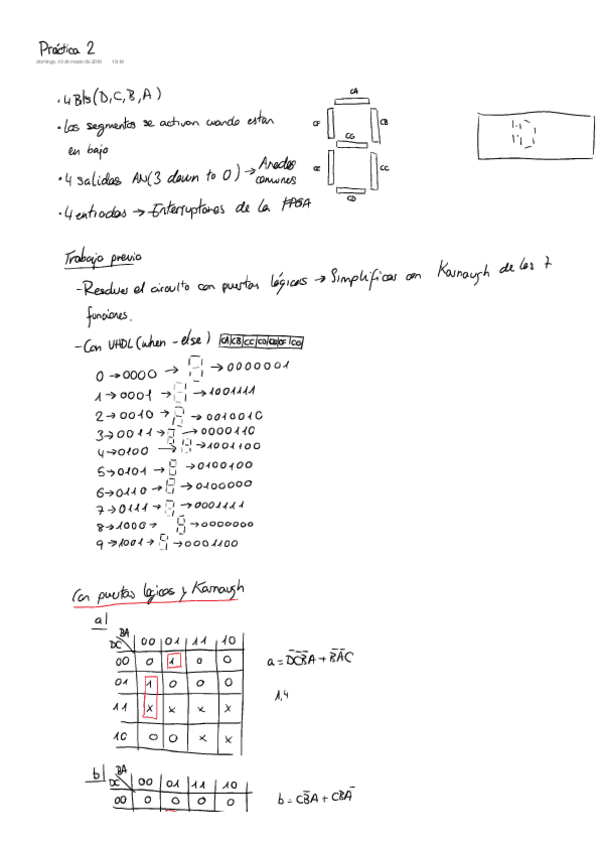 Práctica 2
domingo, 10 de marzo de 2019
· 4 Bits (D, C, B, A)
· Los segmentos se activan cuando estan
en bajo
· 4 salidas AN(3 down to 0) → Anodos
comunes
· 4 entradas → Interruptores de la FPGA
CA
CF
CB
CG
CE
CC
CD
Trabajo previo
- Resolver el circuito con puertas lógicas → Simplificar con Karnaugh de las 7
funciones.
- Con VHDL (when - else) |CA|CB|CC|CD|CE|CF|CG|
0 → 0000 → → 0000001
1 → 0001 → → 1001111
2 → 0010 → → 0010010
3 → 0011 → → 0000110
4 → 0100 → → 1001100
5 → 0101 → → 0100100
6 → 0110 → → 0100000
7 → 0111 → → 0001111
8 → 1000 → → 0000000
9 → 1001 → → 0001100
Con puertas lógicas y Karnaugh
a|
DC BA 00 01 11 10
00 0 1 0 0
01 1 0 0 0
11 x x x x
10 0 0 x x
a = D̅C̅B̅A + B̅A̅C
1,4
b|
DC BA 00 01 11 10
00 0 0 0 0
b = CB̅A + CBA̅